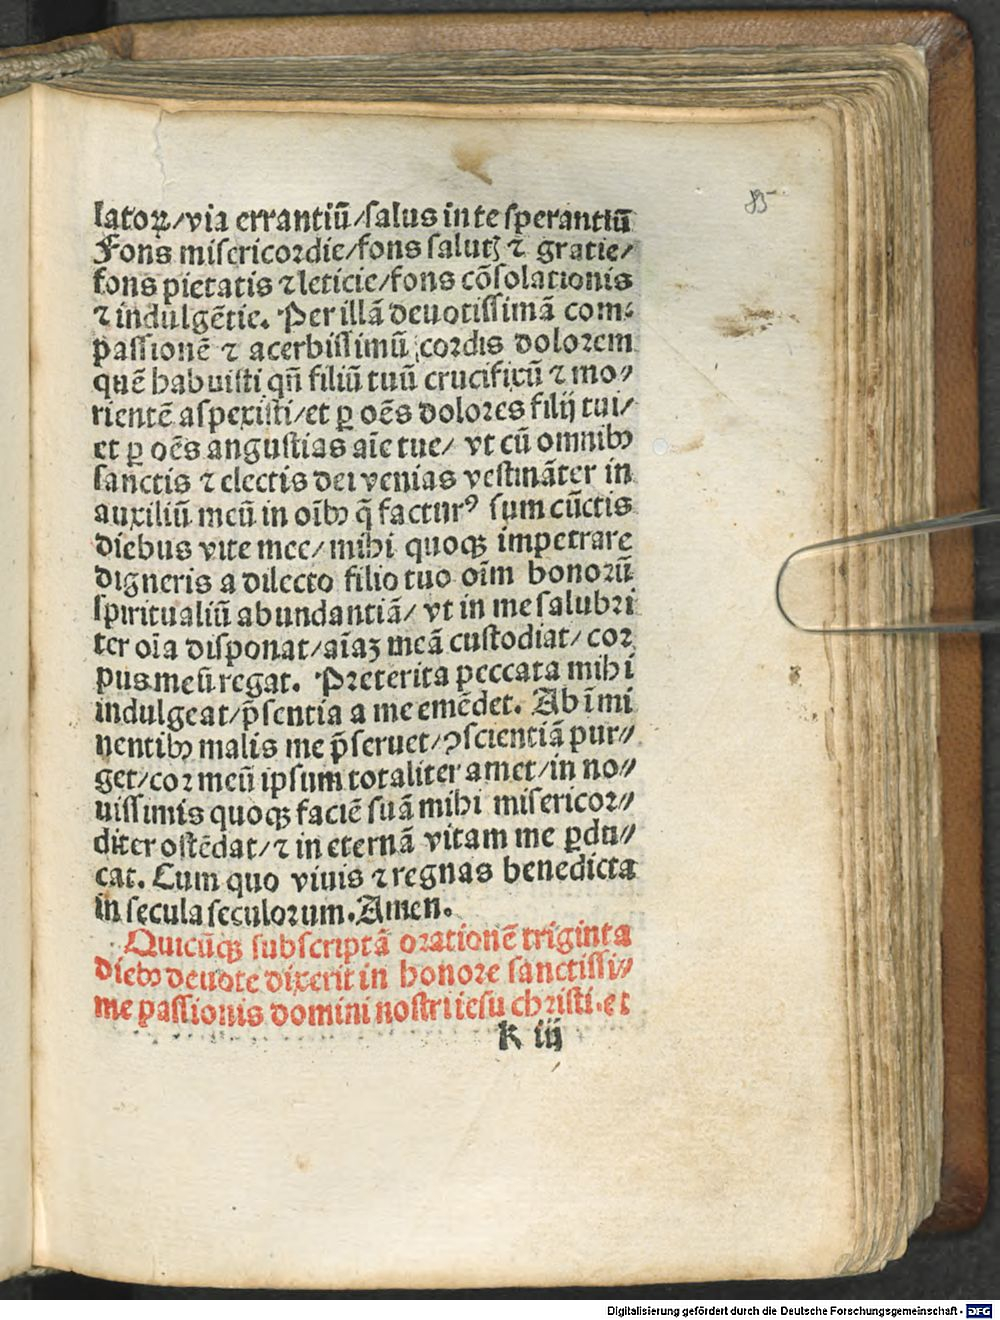 85
latoꝝ/via errantiũ/salus in te sperantiũ
Fons misericordie/fons salutꝫ ⁊ gratie/
fons pietatis ⁊ leticie/fons cõsolationis
⁊ indulgẽtie. Per illã deuotissimã com⸗
passionẽ ⁊ acerbissimũ cordis dolorem
quẽ habuisti qñ filiũ tuũ crucifixũ ⁊ mo⸗
rientẽ aspexisti/et ꝑ oẽs dolores filij tui/
et ꝑ oẽs angustias aĩe tue/ vt cũ omnibꝰ
sanctis ⁊ electis dei venias vestinãter in
auxiliũ meũ in oĩbꝰ q̃ facturꝰ sum cũctis
diebus vite mee/ mihi quoqꝫ impetrare
digneris a dilecto filio tuo oĩm bonorũ
spiritualiũ abundantiã/ vt in me salubri
ter oĩa disponat/aĩaꝫ meã custodiat/ cor
pus meũ regat. Preterita peccata mihi
indulgeat/p̃sentia a me emẽdet. Ab ĩmi
nentibꝰ malis me p̃seruet/ꝯscientiã pur⸗
get/cor meũ ipsum totaliter amet/in no⸗
uissimis quoqꝫ faciẽ suã mihi misericor⸗
diter ostẽdat/⁊ in eternã vitam me ꝑdu⸗
cat. Cum quo viuis ⁊ regnas benedicta
in secula seculorum. Amen.
Quicũqꝫ subscriptã orationẽ triginta
diebꝰ deuote dixerit in honore sanctissi⸗
me passionis domini nostri iesu christi. et
K iij
Digitalisierung gefördert durch die Deutsche Forschungsgemeinschaft - DFG